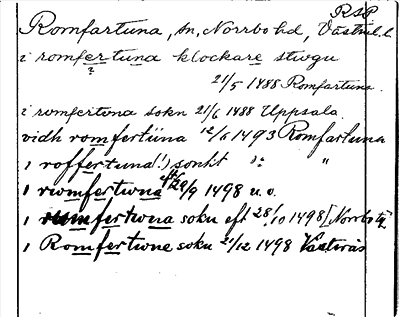 RSP
Romfartuna, sn, Norrbo hd, Västml. l.
i romfertuna klockare stwgu
?
21/5 1488 Romfartuna
i romfertvna sokn 21/6 1488 Uppsala.
vidh romfertüna 12/5 1493 Romfartuna
i roffertuna(!) sonht ": "
i rwmfertwna 26/9 1498 u. o.
i rumfertwna sokn eft 28/10 1498 [Norrbo
i Romfertwne sokn 21/12 1498 Västerås